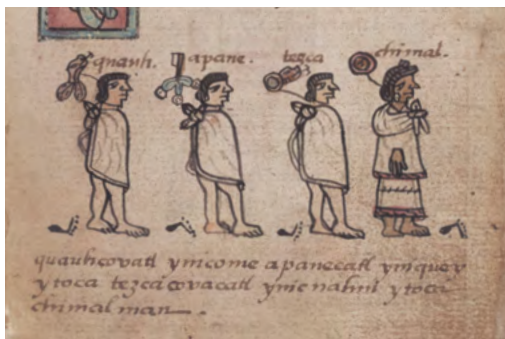 quauh. apane. tezca chimal.
quauhcovatl ynicome apanecatl yniquey
ytoca tezcacovacatl ynic nahui ytoca
chimalman.